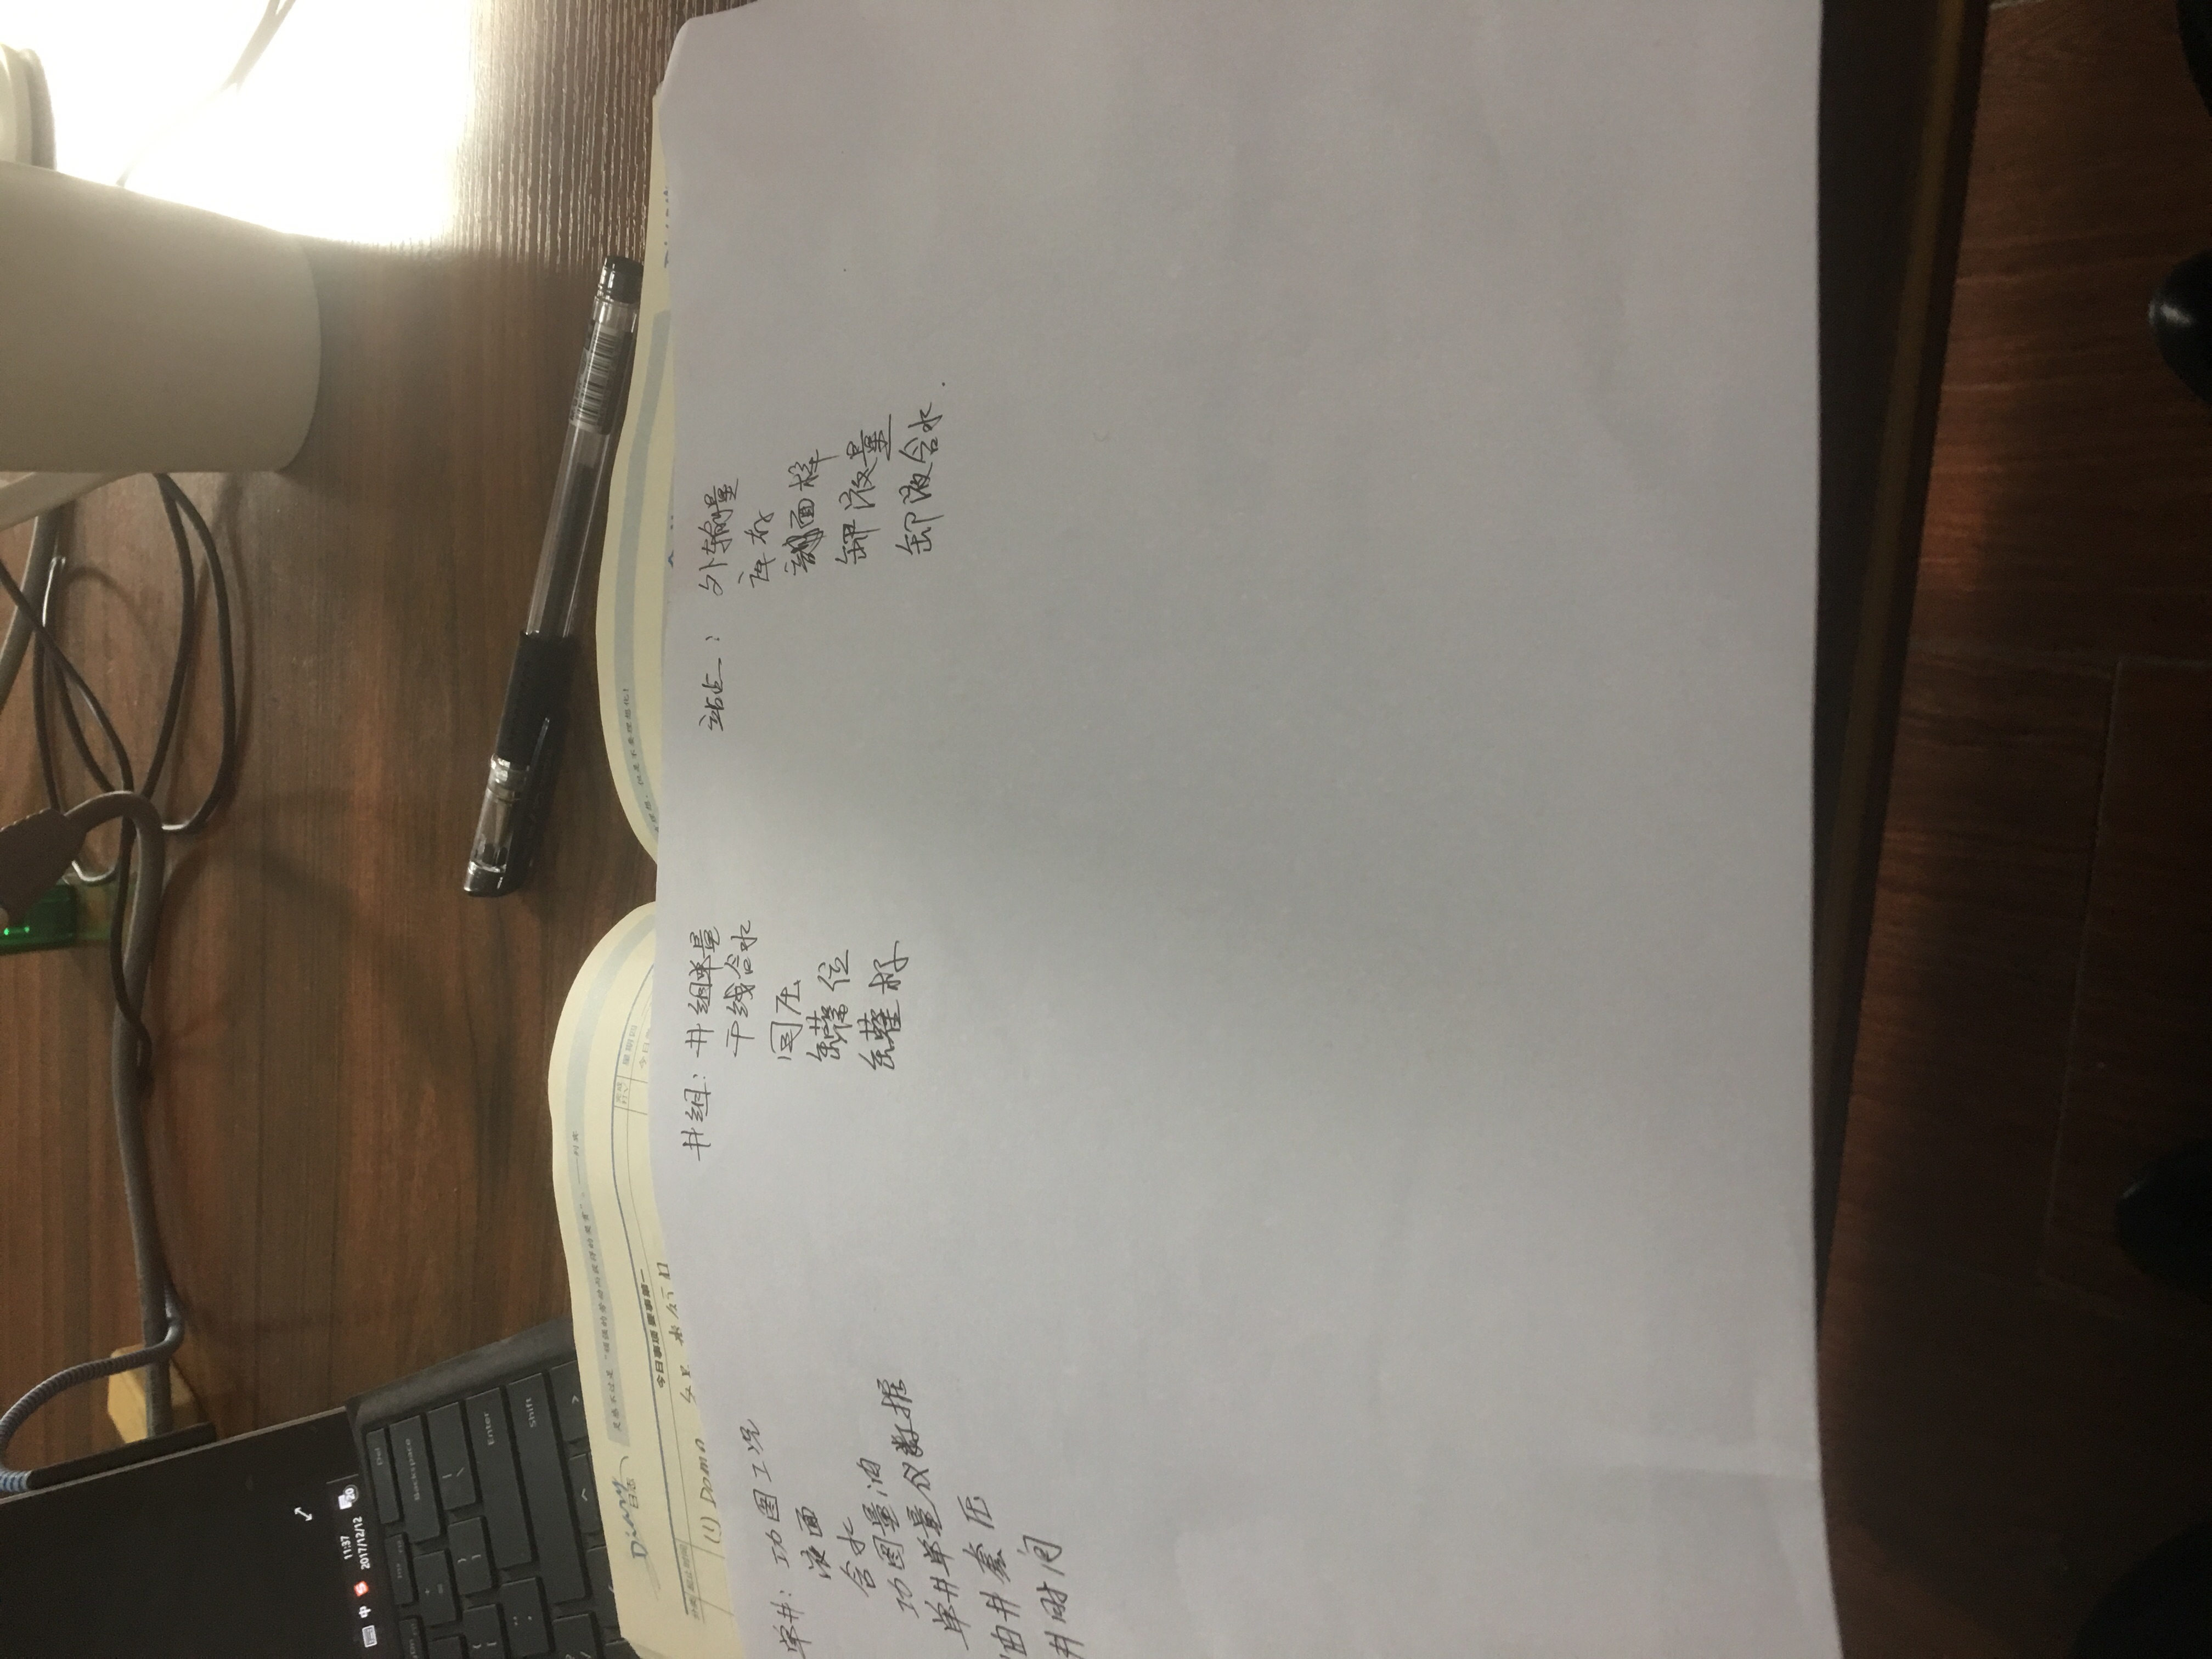 中
11:37
2017/12/12
20
Del
Ins
Backspace
Enter
Shift
Diary
日志
灵感不过是“顽强的劳动而获得的奖赏”。——列宾
今日事项 要事第一
星期四
今日
起止时间
(1) Demo
理想，但是不要理想化!
单井: 功图工况
液面
含水
功图量油
单井单量仪数据
油井套压
井时间
井组: 井组单量
干线含水
回压
罐位
罐样
站点: 外输量
库存
剖面样
卸液量
卸液含水.